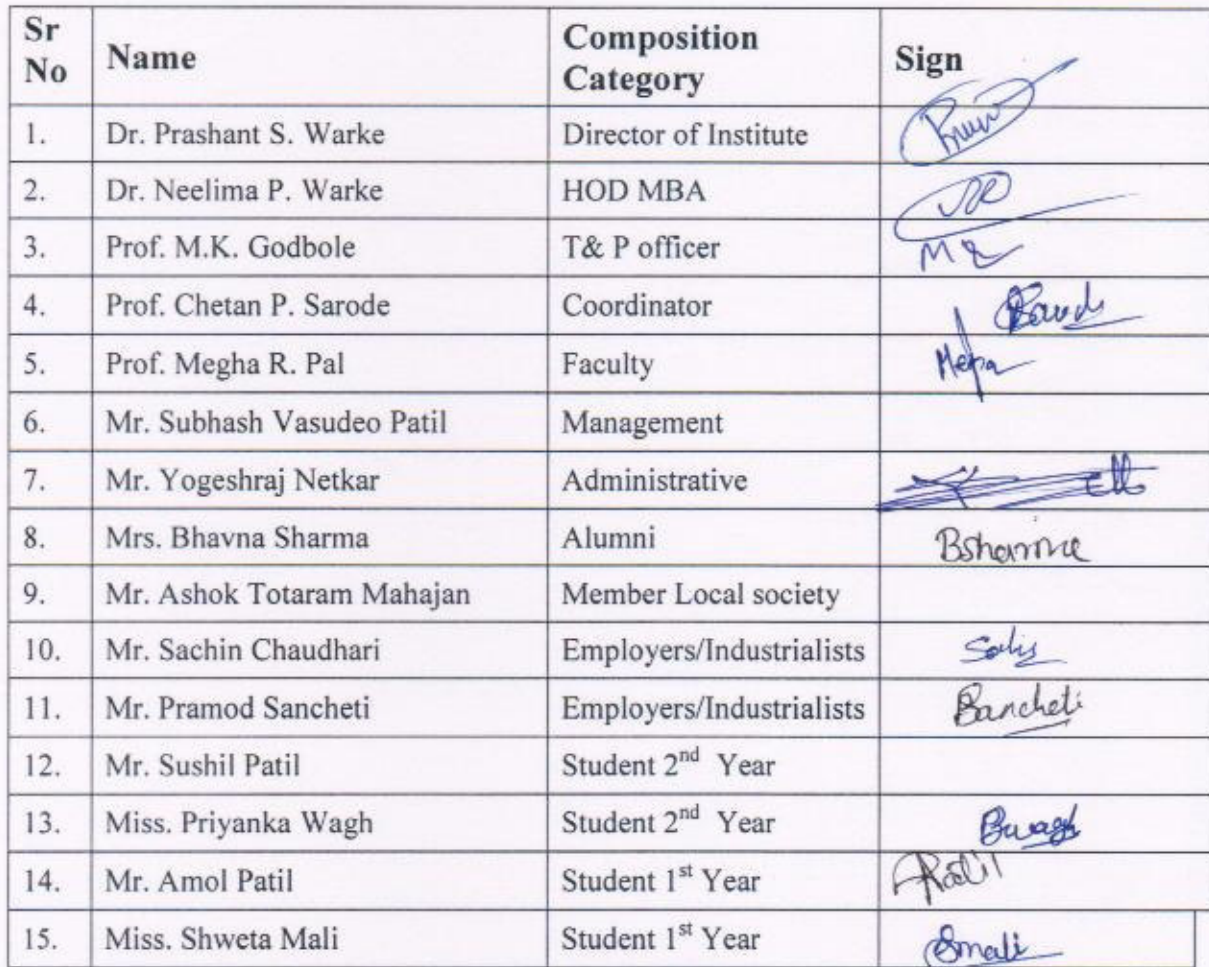 Sr No Name Composition Category Sign
1. Dr. Prashant S. Warke Director of Institute
2. Dr. Neelima P. Warke HOD MBA
3. Prof. M.K. Godbole T& P officer
4. Prof. Chetan P. Sarode Coordinator
5. Prof. Megha R. Pal Faculty Megha
6. Mr. Subhash Vasudeo Patil Management
7. Mr. Yogeshraj Netkar Administrative
8. Mrs. Bhavna Sharma Alumni Bsharma
9. Mr. Ashok Totaram Mahajan Member Local society
10. Mr. Sachin Chaudhari Employers/Industrialists
11. Mr. Pramod Sancheti Employers/Industrialists Bancheti
12. Mr. Sushil Patil Student 2nd Year
13. Miss. Priyanka Wagh Student 2nd Year Pwagh
14. Mr. Amol Patil Student 1st Year APatil
15. Miss. Shweta Mali Student 1st Year Smali